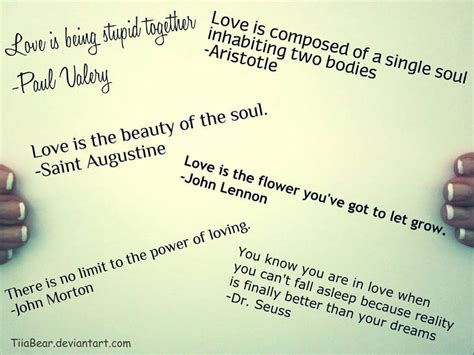 Love is being stupid together
-Paul Valery
Love is composed of a single soul
inhabiting two bodies
-Aristotle
Love is the beauty of the soul.
-Saint Augustine
Love is the flower you've got to let grow.
-John Lennon
There is no limit to the power of loving.
-John Morton
You know you are in love when
you can't fall asleep because reality
is finally better than your dreams
-Dr. Seuss
TiiaBear.deviantart.com